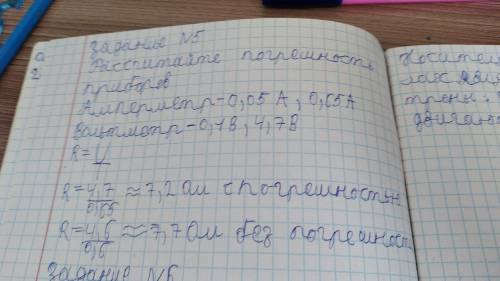 задание N5
Рассчитайте погрешность
приборов
Амперметр-0,05А, 0,65А
Вольтметр-0,1В, 4,7В
R=U
R=4,7/0,65≈7,2 Ом с погрешностью
R=4,6/0,6≈7,7 Ом без погрешность
задание N6
Носител
лах